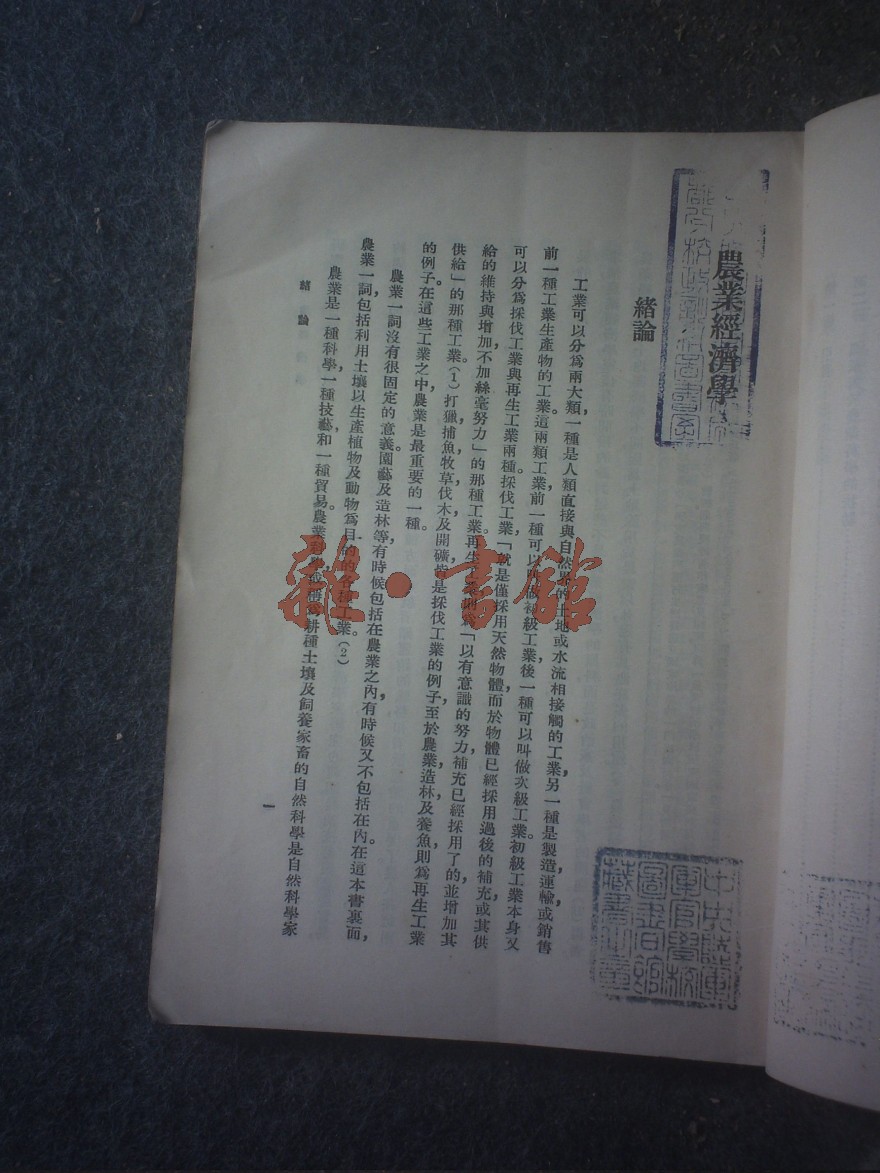 農業經濟學
緒論
工業可以分爲兩大類，一種是人類直接與自然界的土地或水流相接觸的工業，另一種是製造運輸，或銷售
前一種工業生產物的工業。這兩類工業，前一種可以叫做初級工業，後一種可以叫做次級工業。初級工業本身又
可以分爲採伐工業與再生工業兩種。採伐工業「就是僅採用天然物體，而於物體已經採用過後的補充，或其供
給的維持與增加，不加絲毫努力」的那種工業。再生工業則爲「以有意識的努力，補充已經採用了的，並增加其
供給」的那種工業(1)打獵，捕魚，牧草，伐木，及開礦皆是採伐工業的例子，至於農業，造林，及養魚，則爲再生工業
的例子。在這些工業之中，農業是最重要的一種。
農業一詞沒有很固定的意義。園藝及造林等，有時候包括在農業之內，有時候又不包括在內。在這本書裏面，
農業一詞，包括利用土壤以生產植物及動物爲目的的各種工業。(2)
農業是一種科學，一種技藝，和一種貿易。農業科學或稱爲耕種土壤及飼養家畜的自然科學，是自然科學家
緒論
一
雜·書館
圖書館
藏書之章